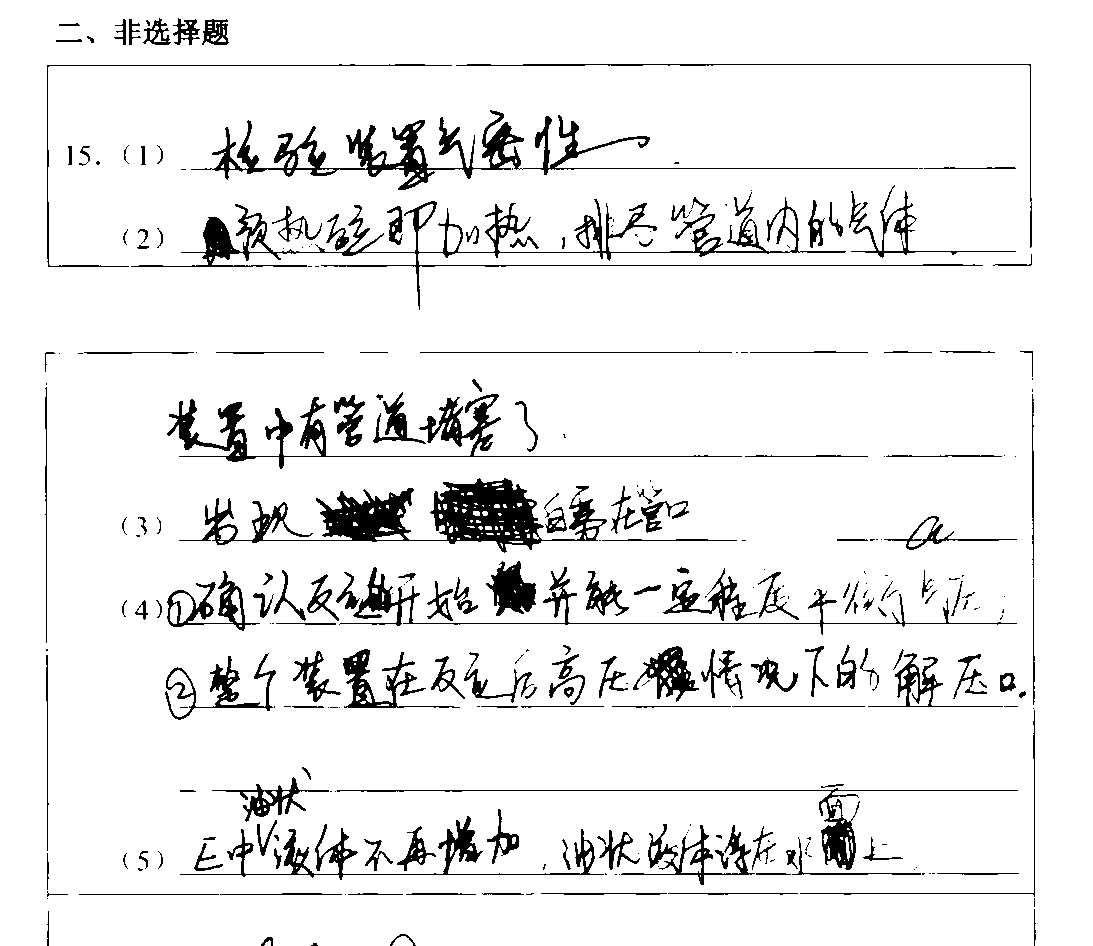 二、非选择题
15.（1） 检验装置气密性
（2） 预热 即加热，排尽管道内的气体
装置中有管道堵塞了.
（3） 发现 在管口 a
（4）①确认反应开始 并能一定程度平衡气压，
②整个装置在反应后高压情况下的解压口.
油状
（5） E中√液体不再增加，油状液体浮在水面上